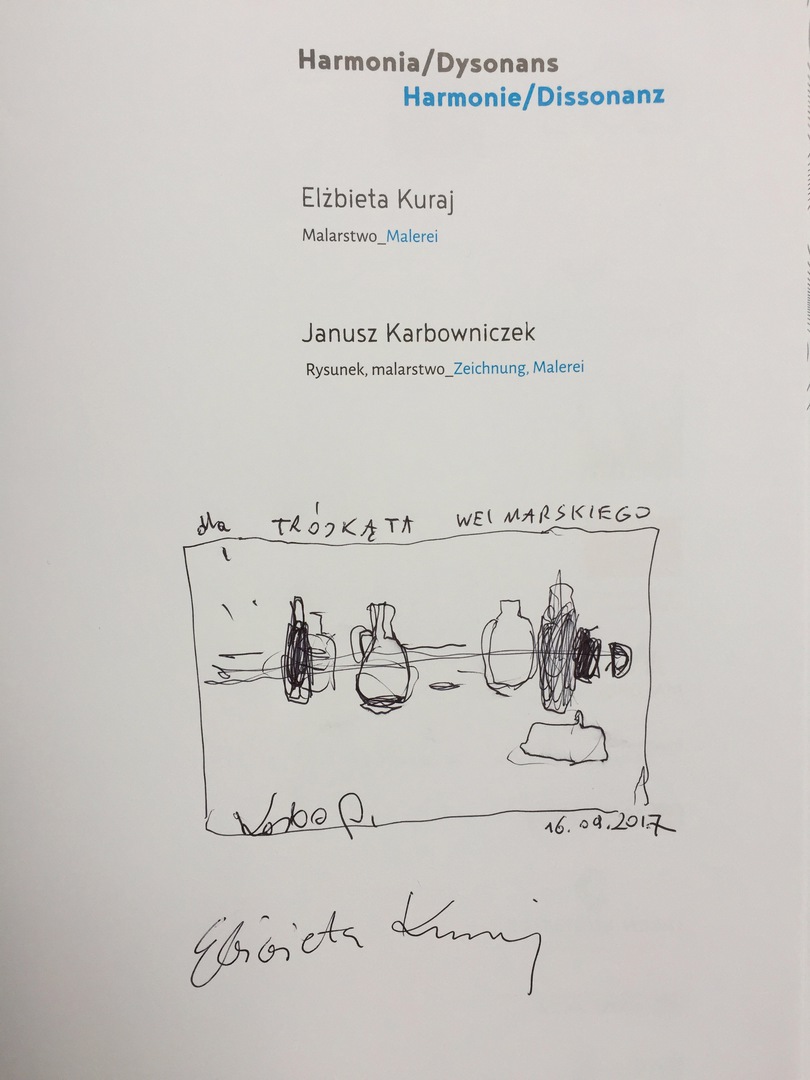 Harmonia/Dysonans
Harmonie/Dissonanz
Elżbieta Kuraj
Malarstwo_Malerei
Janusz Karbowniczek
Rysunek, malarstwo_Zeichnung, Malerei
dla TRÓJKĄTA WEIMARSKIEGO
16.09.2017
Elżbieta Kuraj